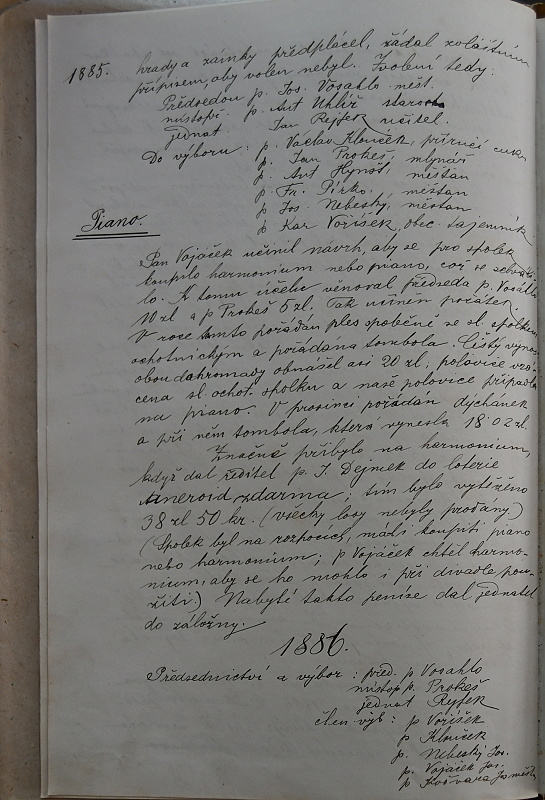 1885. hrady a zámky předplácel, žádal zvláštním
přípisem, aby volen nebyl. Zvoleni tedy:
Předsedou p. Jos. Vosahlo měšt.
místopř. p. Ant Uhlíř starosta
jednat Jan Rejfek učitel.
Do výboru: p. Václav Klouček, příručí cukr
p. Jan Prokeš, mlynář
p. Ant Hynšt, měšťan
p. Fr. Pírko, měšťan
p Jos. Nebeský, měšťan
p Kar Voříšek, obec. tajemník
Piano.
Pan Vojáček učinil návrh, aby se pro spolek
koupilo harmonium nebo piano, což se schváli-
lo. K tomu účelu věnoval předseda p. Vosáhlo
10 zl a p Prokeš 5 zl. Tak učiněn počátek
V roce tomto pořádán ples společně se sl. spolkem
ochotnickým a pořádána tombola. Čistý výnos
obou dohromady obnášel asi 20 zl; polovice
cena sl. ochot. spolku a naše polovice připadla
na piano. V prosinci pořádán dýchánek
a při něm tombola, která vynesla 18.02 zl.
Značně přibylo na harmonium,
když dal ředitel p. I. Dejmek do loterie
Aneroid zdarma; tím bylo vytěženo
38 zl 50 kr. (všechy losy nebyly prodány)
(Spolek byl na rozhocích, máli koupiti piano
nebo harmonium; p Vojáček chtěl harmo-
nium, aby se ho mohlo i při divadle pou-
žíti.) Nabyté takto peníze dal jednatel
do záložny.
1886.
Předsednictví a výbor: před. p Vosahlo
místop p. Prokeš
jednat Rejfek
člen. výb: p Voříšek
p Klouček
p. Nebeský Jos.
p. Vojáček Jos.
p Košvara Jos měšť